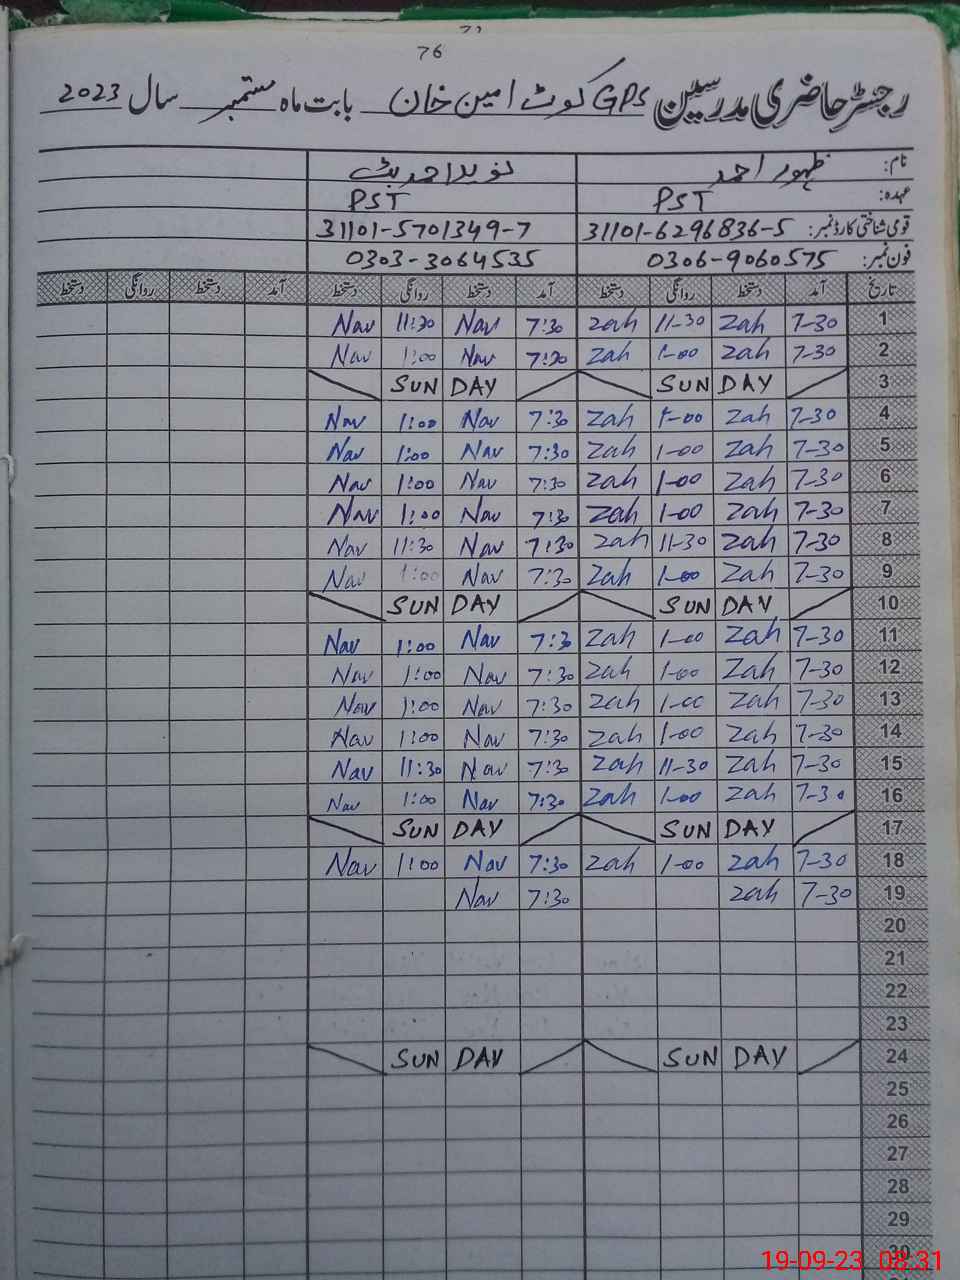 76
رجسٹر حاضری مدرسین GPS کوٹ امین خان بابت ماہ ستمبر سال 2023
نام: ظہور احمد نوید احمد بٹ
عہدہ: PST PST
قومی شناختی کارڈ نمبر: 31101-6296836-5 31101-5701349-7
فون نمبر: 0306-9060575 0303-3064535
تاریخ آمد دستخط روانگی دستخط آمد دستخط روانگی دستخط آمد دستخط روانگی دستخط
1 7-30 Zah 11-30 Zah 7:30 Nav 11:30 Nav
2 7-30 Zah 1-00 Zah 7:30 Nav 1:00 Nav
3 SUNDAY SUNDAY
4 7-30 Zah 1-00 Zah 7:30 Nav 1:00 Nav
5 7-30 Zah 1-00 Zah 7:30 Nav 1:00 Nav
6 7-30 Zah 1-00 Zah 7:30 Nav 1:00 Nav
7 7-30 Zah 1-00 Zah 7:30 Nav 1:00 Nav
8 7-30 Zah 11-30 Zah 7:30 Nav 11:30 Nav
9 7-30 Zah 1-00 Zah 7:30 Nav 1:00 Nav
10 SUNDAY SUNDAY
11 7-30 Zah 1-00 Zah 7:30 Nav 1:00 Nav
12 7-30 Zah 1-00 Zah 7:30 Nav 1:00 Nav
13 7-30 Zah 1-00 Zah 7:30 Nav 1:00 Nav
14 7-30 Zah 1-00 Zah 7:30 Nav 1:00 Nav
15 7-30 Zah 11-30 Zah 7:30 Nav 11:30 Nav
16 7-30 Zah 1-00 Zah 7:30 Nav 1:00 Nav
17 SUNDAY SUNDAY
18 7-30 Zah 1-00 Zah 7:30 Nav 1:00 Nav
19 7-30 Zah 7:30 Nav
20
21
22
23
24 SUNDAY SUNDAY
25
26
27
28
29
30
19-09-23 08:31